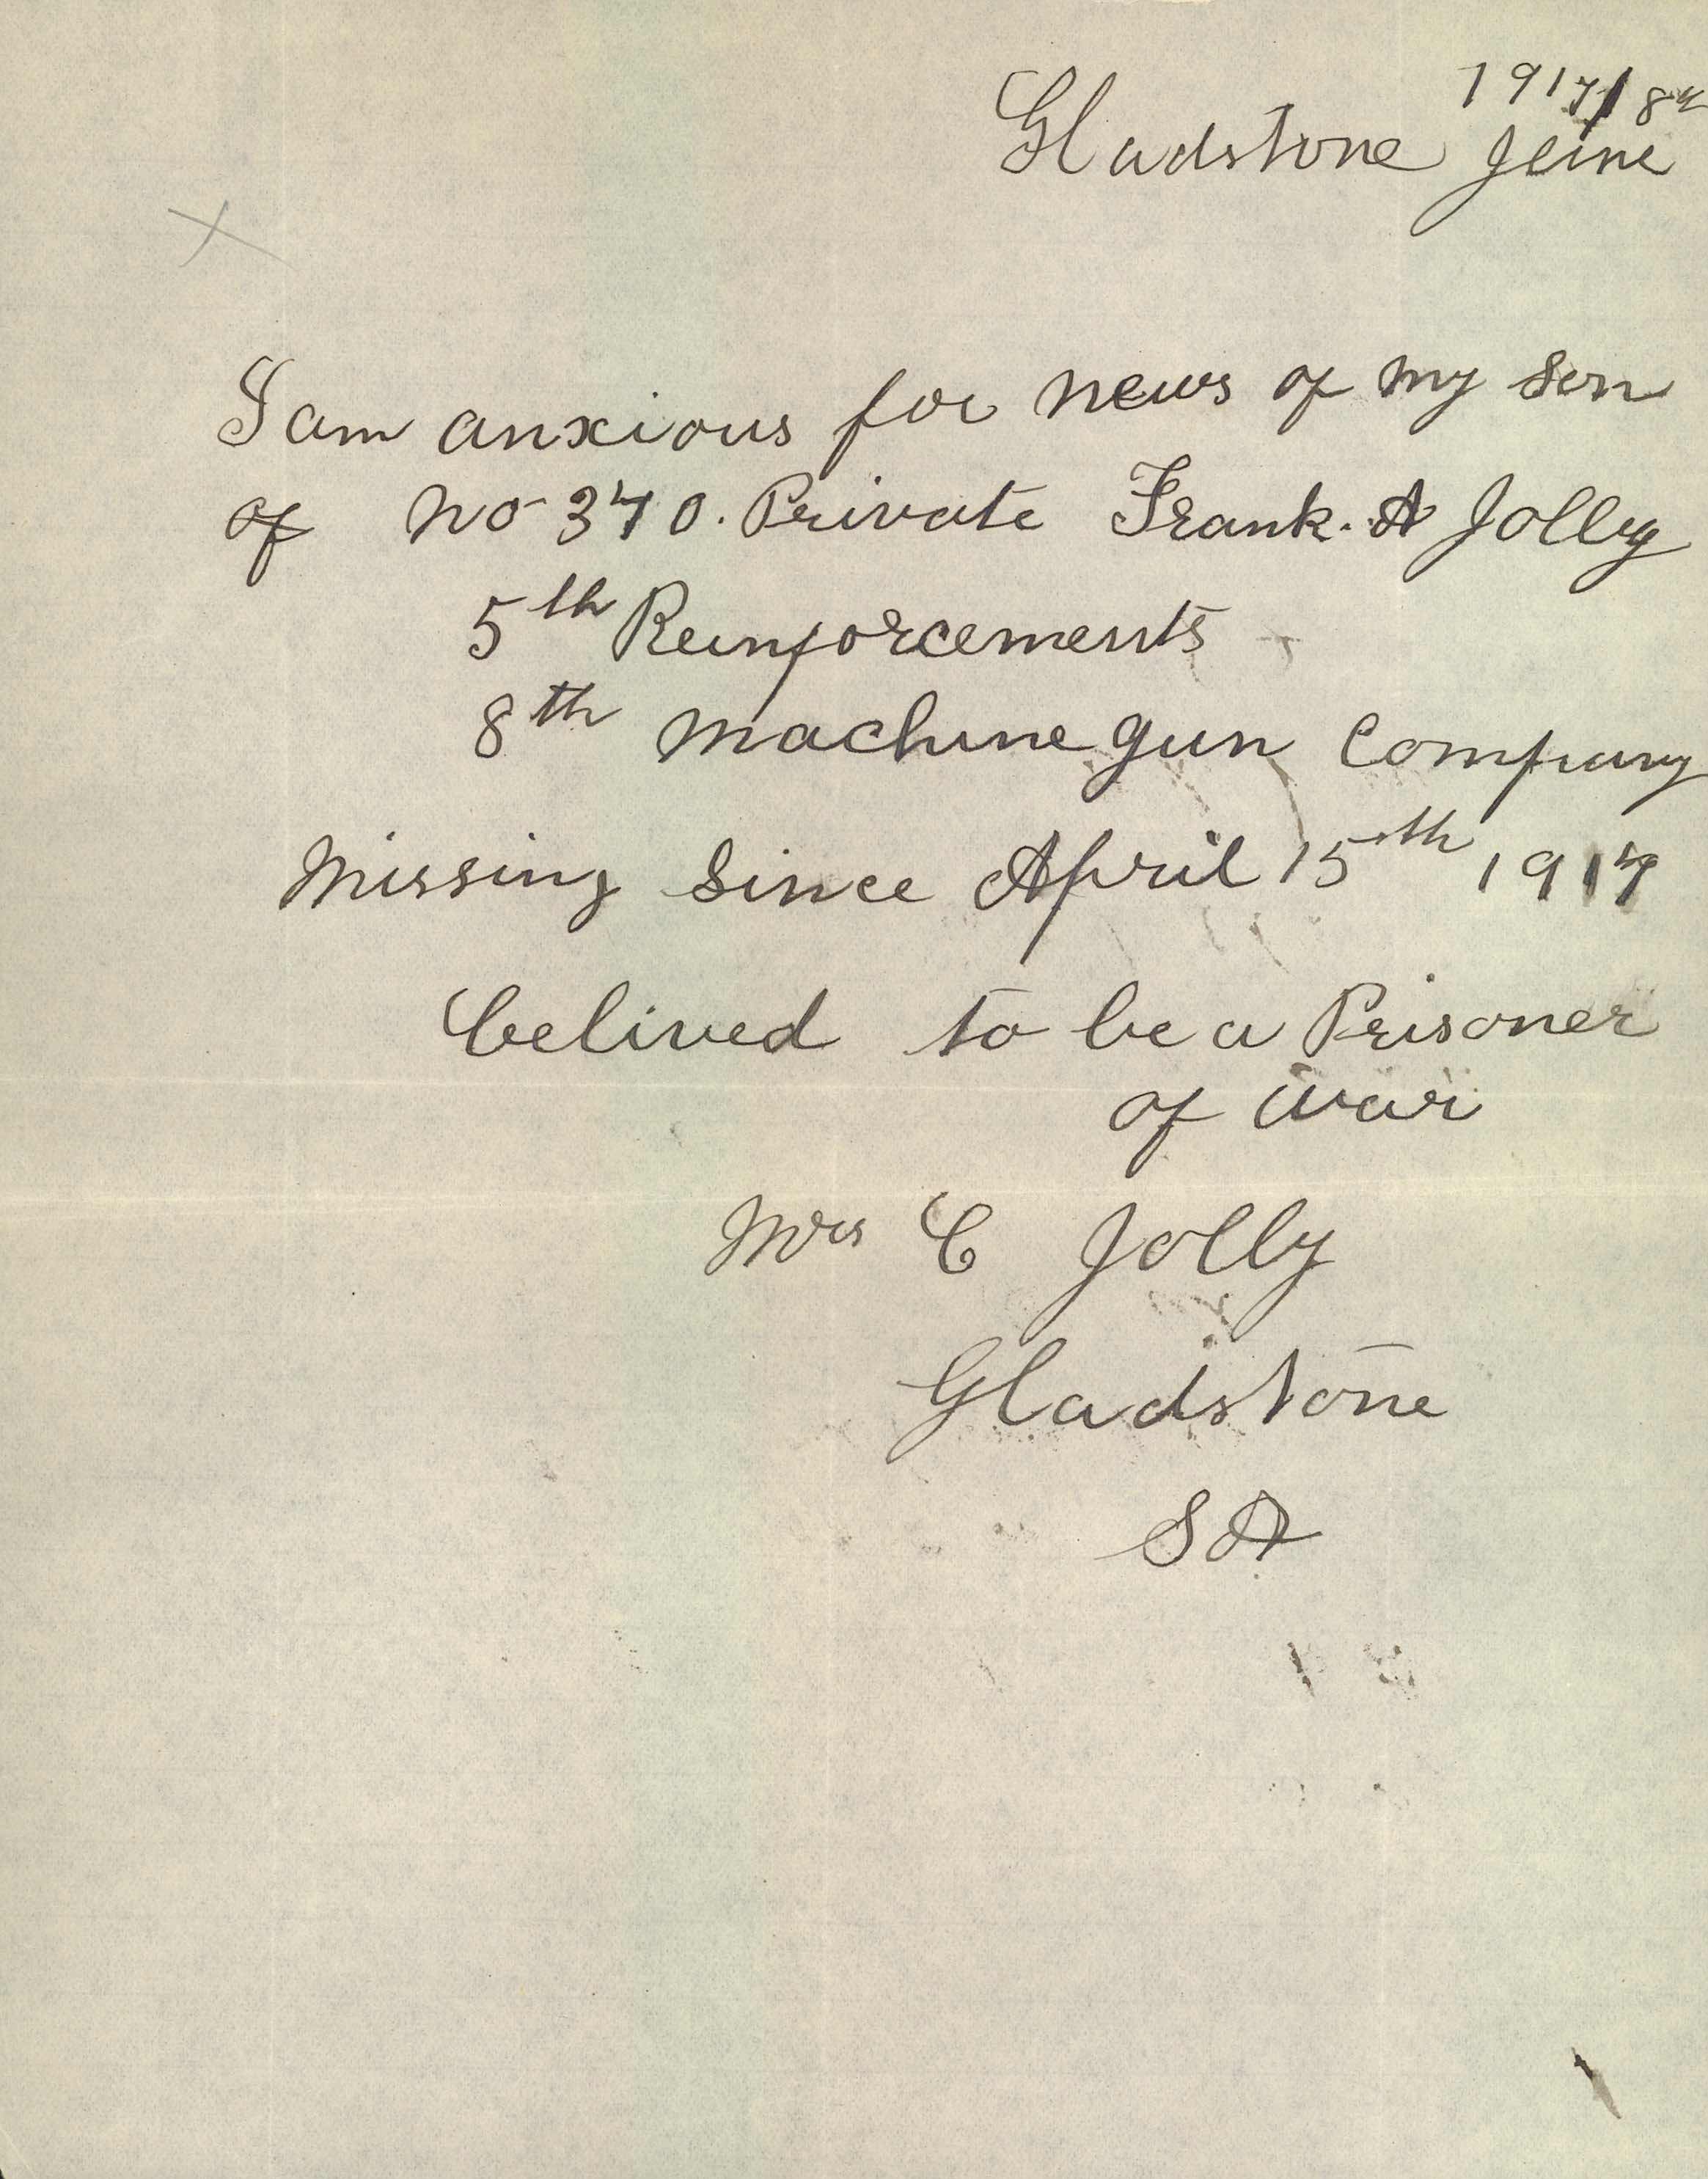 1917/8th
Gladstone June
I am anxious for news of my Son
of No 370. Private Frank. A Jolly
5th Reinforcements
8th Machine gun Company
Missing Since April 15th 1917
belived to be a Prisoner
of War
Mrs C Jolly
Gladstone
SA